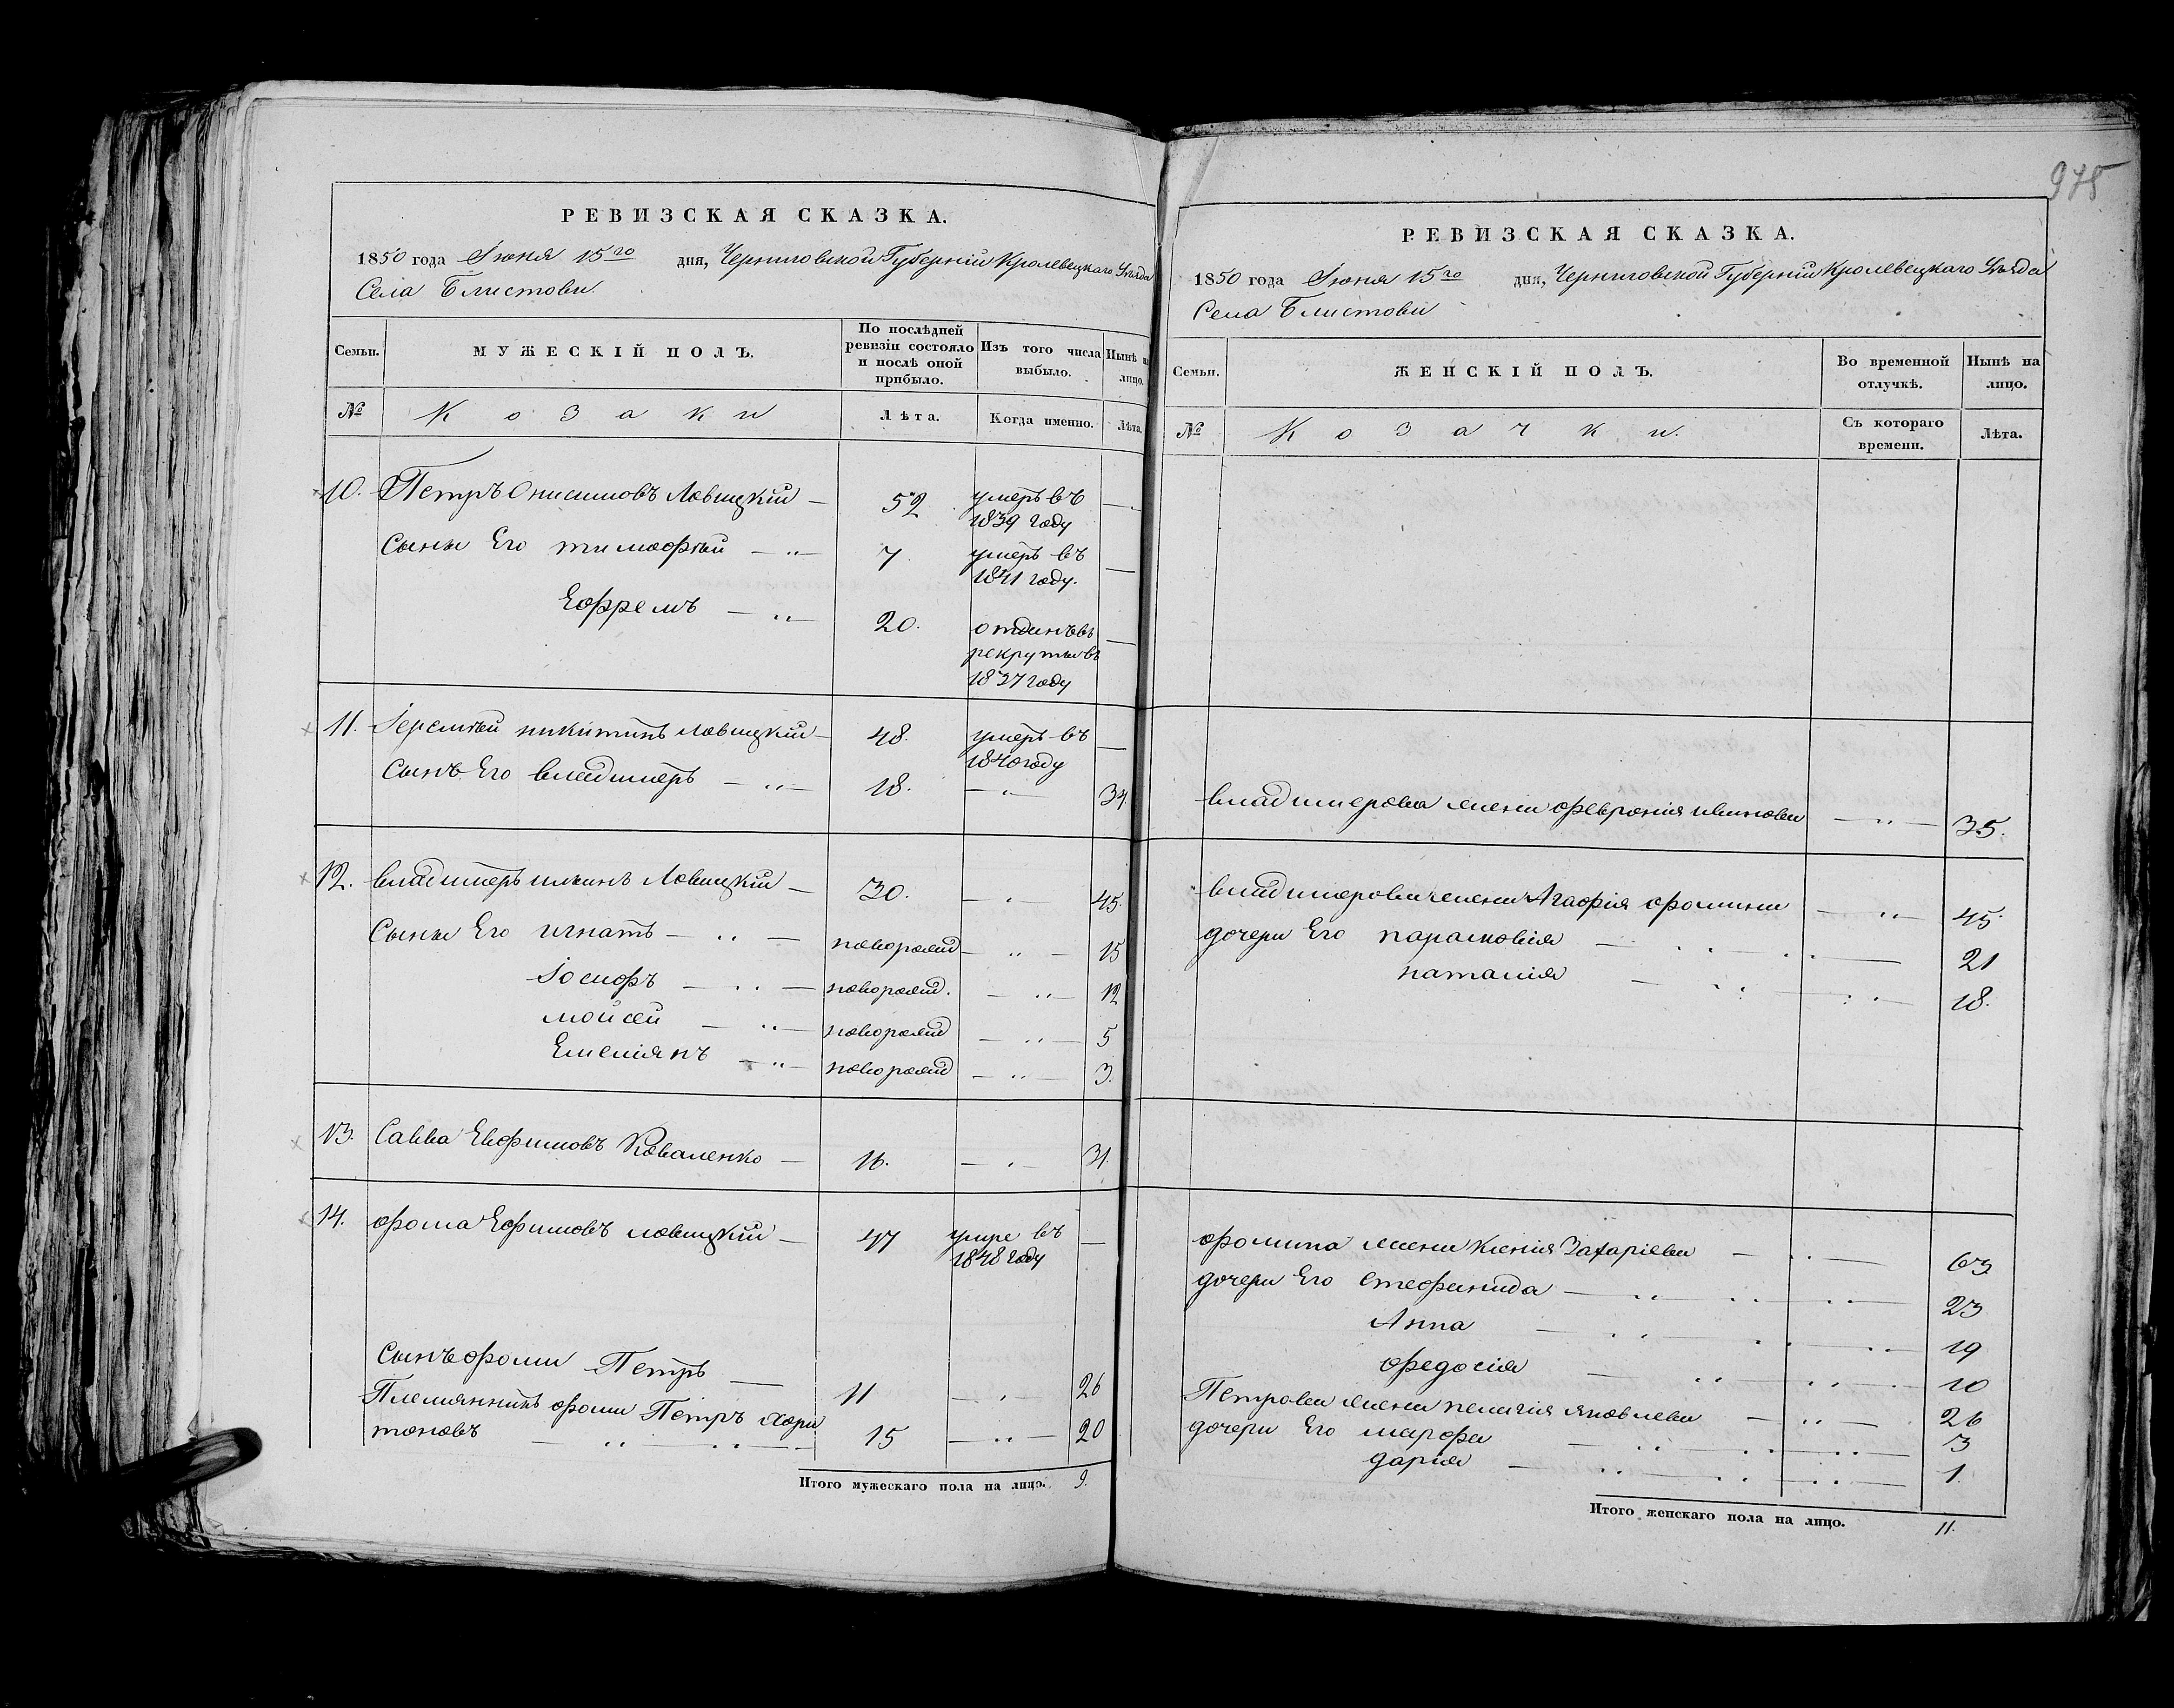 975
РЕВИЗСКАЯ СКАЗКА.
1850 года Іюня 15го дня, Черниговской Губерніи Кролевецкаго Уѣзда
Села Блистови.
Семьи. МУЖЕСКІЙ ПОЛЪ. По послѣдней ревизіи состояло и послѣ оной прибыло. Изъ того числа выбыло. Нынѣ на лицо.
№ Козаки Лѣта. Когда именно. Лѣта.
10. Петръ Онисимовъ Ловицкій — 52 умеръ въ 1839 году —
Сыны Его тимофѣй — 7. умеръ въ 1841 году. —
Ефремъ — 20. отданъ въ рекруты въ 1837 году —
11. Іеремѣй никитинъ Ловицкій — 48. умеръ въ 1840 году —
Сынъ Его владимеръ — 18. — 34.
12. владимеръ ильинъ Ловицкій — 30. — 45.
Сыны Его игнатъ — новорожд — 15
Іосифъ — новорожд. — 12
мойсей — новорожд — 5
Емеліянъ — новорожд — 3.
13. Савва Евфимовъ Коваленко — 16. — 31.
14. фома Ефимовъ ловицкій — 47 умре въ 1848 году —
Сынъ фомы Петръ — 11 — 26
Племянникъ фомы Петръ Хари
тоновъ — 15 — 20
Итого мужескаго пола на лицо. 9.
РЕВИЗСКАЯ СКАЗКА.
1850 года Іюня 15го дня, Черниговской Губерніи Кролевецкаго Уѣзда
Села Блистови
Семьи. ЖЕНСКІЙ ПОЛЪ. Во временной отлучкѣ. Нынѣ на лицо.
№ Козачки. Съ котораго времени. Лѣта.
владимерова жена февронія иванова — 35.
владимерова жена Агафія фомина — 45.
дочери Его парасковія — 21
наталія — 18.
фомина жена Ксенія Захаріева — 63
дочери Его стефанида — 23
Анна — 19
федосія — 10
Петрова жена пелагія яковлева — 26
дочери Его марфа — 3
дарія — 1.
Итого женскаго пола на лицо. 11.